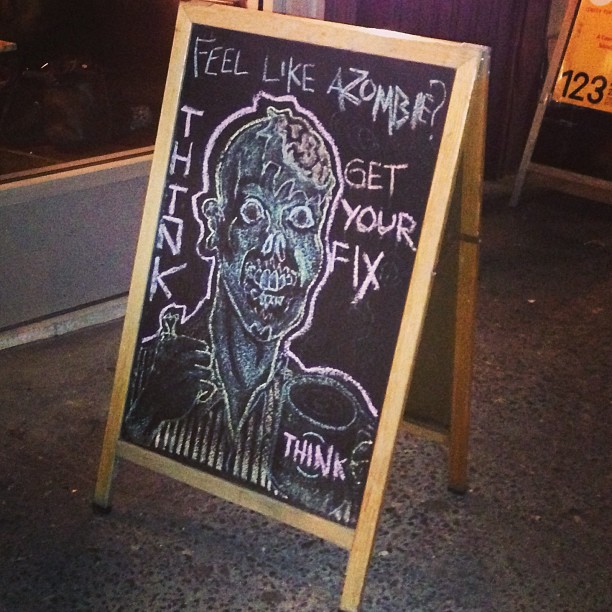 FEEL LIKE A ZOMBIE?
THINK
GET
YOUR
FIX
THINK
123